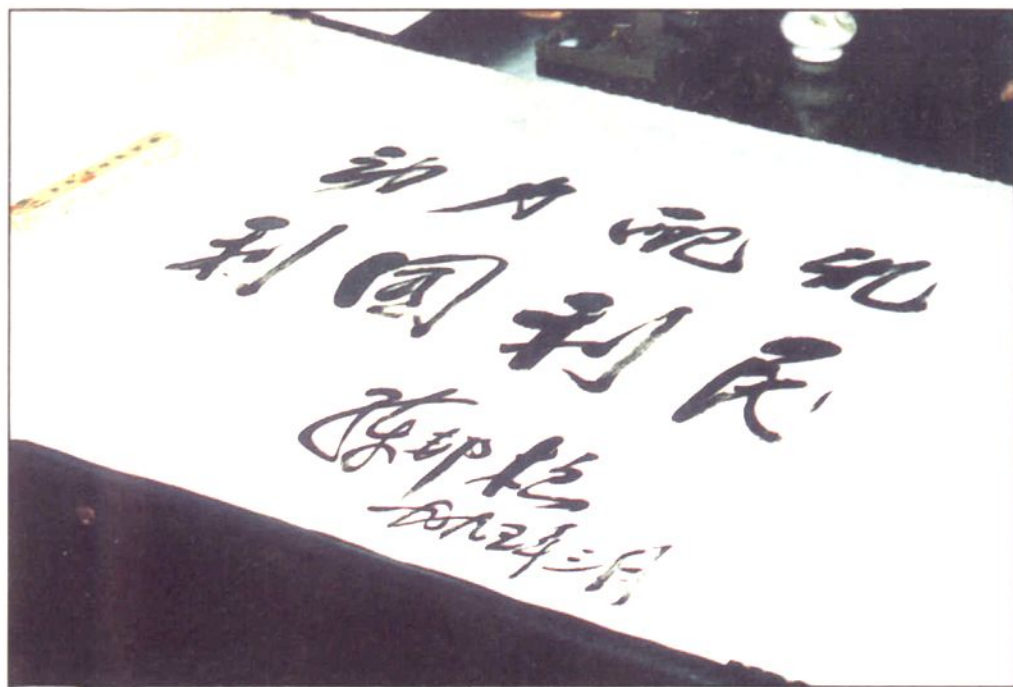 动力配机
利国利民
陈邦柱
一九九五年三月